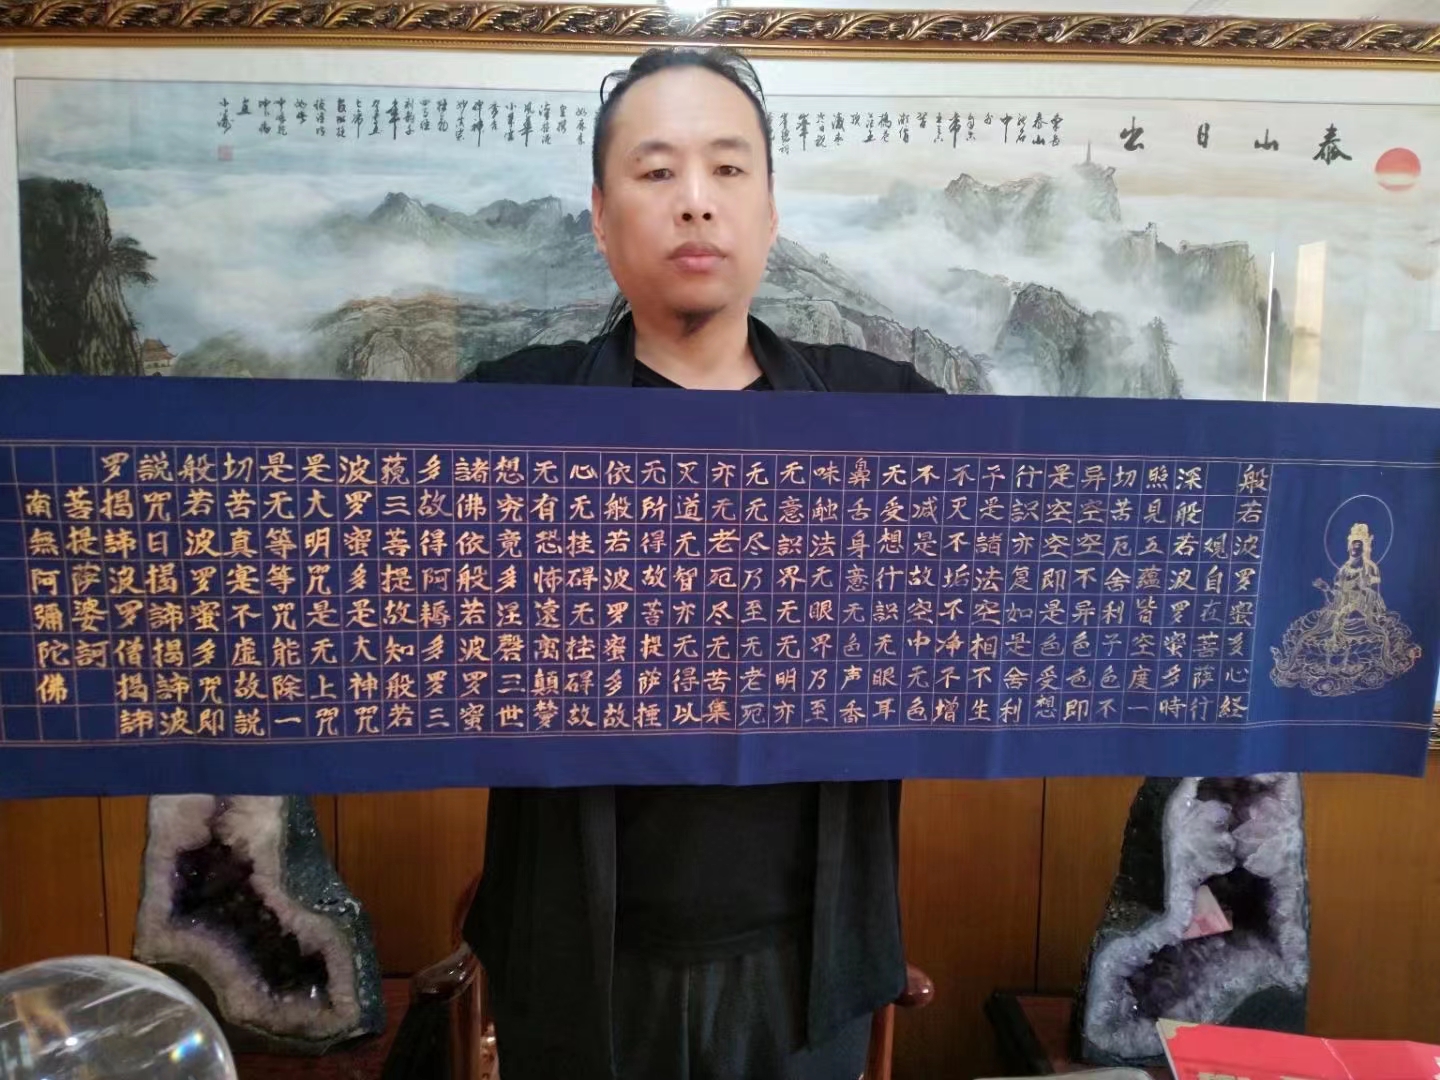 泰山日出
般若波罗蜜多心経
観自在菩萨行
深般若波罗蜜多時
照見五蕴皆空度一
切苦厄舍利子色不
异空空不异色色即
是空空即是色受想
行識亦复如是舍利
子是諸法空相不生
不灭不垢不净不增
不减是故空中无色
无受想行識无眼耳
鼻舌身意无色声香
味触法无眼界乃至
无意識界无无明亦
无无尽乃至无老死
亦无老死尽无苦集
灭道无智亦无得以
无所得故菩提萨捶
依般若波罗蜜多故
心无挂碍无挂碍故
无有恐怖遠离顛夢
想究竟多涅磐三世
諸佛依般若波罗蜜
多故得阿耨多罗三
藐三菩提故知般若
波罗蜜多是大神咒
是大明咒是无上咒
是无等等咒能除一
切苦真实不虚故説
般若波罗蜜多咒即
説咒曰揭諦揭諦波
罗揭諦波罗僧揭諦
菩提萨婆訶
南無阿彌陀佛